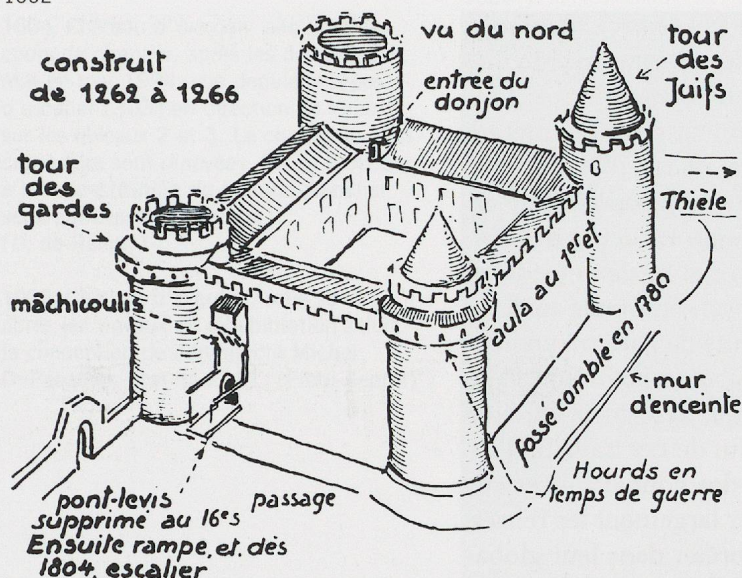 construit
de 1262 à 1266
vu du nord
entrée du
donjon
tour
des
Juifs
tour
des
gardes
Thièle
mâchicoulis
aula au 1er ét.
fossé comblé en 1780
mur
d'enceinte
Hourds en
temps de guerre
passage
pont-levis
supprimé au 16e s
Ensuite rampe, et, dès
1804, escalier